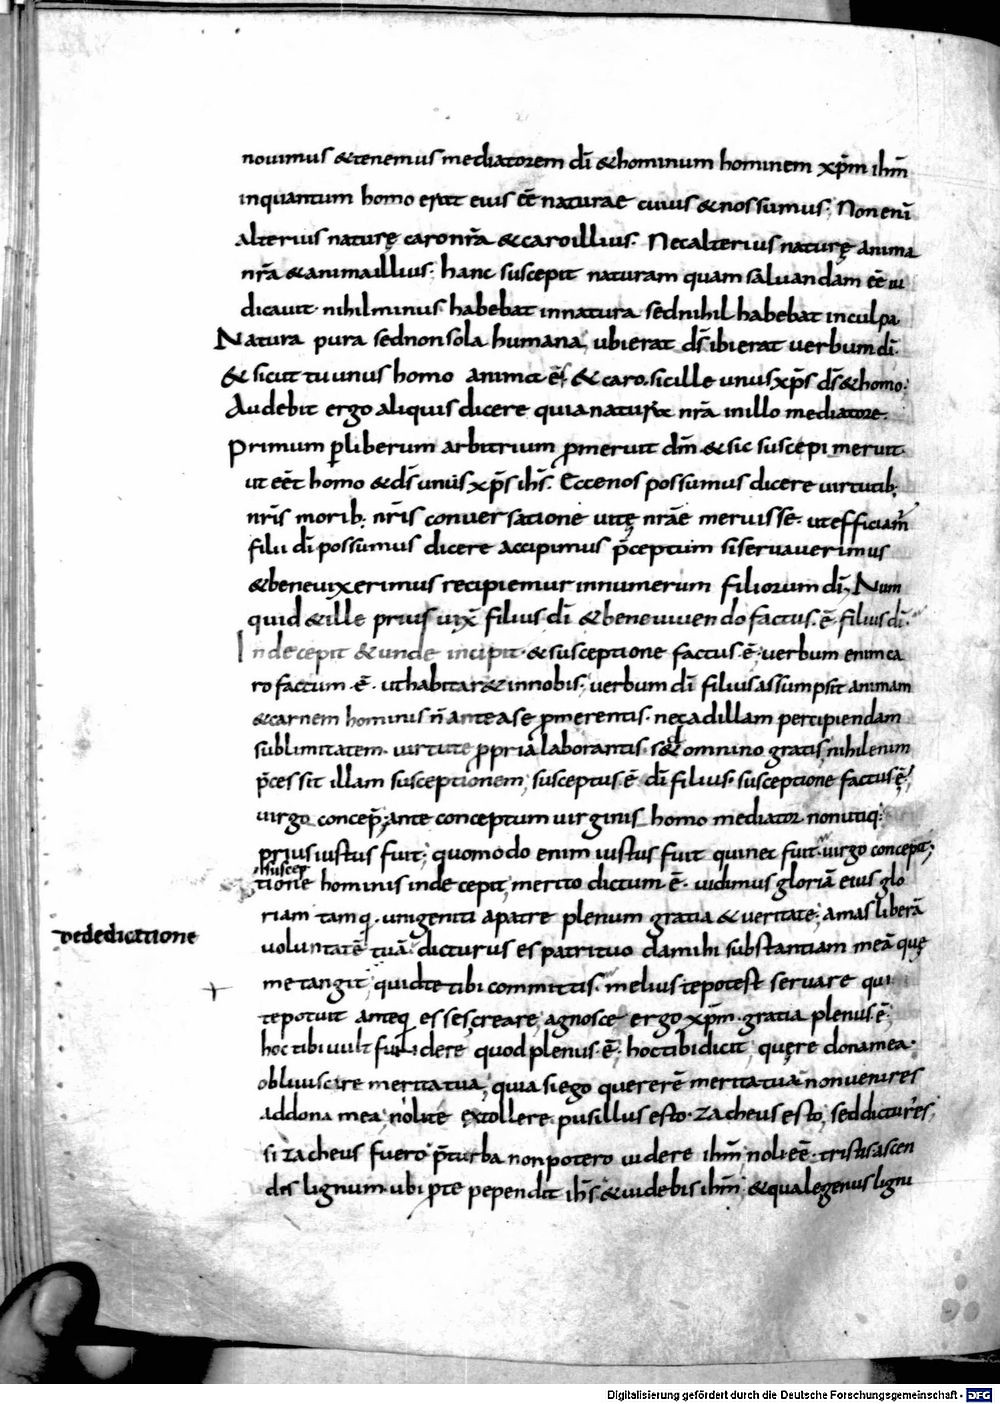 nouimus &tenemus mediatorem dī &hominum hominem xp̄m ihm̄
inquantum homo erat eius eē naturae cuius &nossumus; Nonenī
alterius naturę caronr̄a &caroillius. Necalterius naturę anima
nr̄a &animaillius; hanc suscepit naturam quam saluandam eē iu
dicauit. nihilminus habebat innatura sednihil habebat inculpa
Natura pura sednonsola humana, ubierat ds̄ ibierat uerbum dī.
& sicut tu unus homo anima es & caro. sicille unus xp̄s ds̄ &homo;
Audebit ergo aliquis dicere quia natura nr̄a inillo mediatore.
Primum p̱liberum arbitrium p̱meruit dm̄ &sic suscepi meruit.
ut eēt homo &ds̄ unus xp̄s ihs̄. Eccenos possumus dicere uirtutib;
nr̄is morib; nr̄is conuersatione uitę nrāe meruisse. utefficiam̄
filii dī possumus dicere accipimus p̄ceptum siseruauerimus
&beneuixerimus recipiemur innumerum filiorum dī; Num
quid &ille prius uix̄ filius dī &beneuiuendo factus. ē. filius dī.
Indecepit &unde incipit. &susceptione factus. ē. uerbum enimca
ro factum. ē. uthabitar& innobis; uerbum dī filius assumpsit animam
&carnem hominis n̄ antease p̱merentis. necadillam percipiendam
sublimitatem. uirtute p̱pria laborantis. sed omnino gratis, nihilenim
p̄cessit illam susceptionem, susceptus. ē. dī filius. susceptione factus ē,
uirgo concep̄; ante conceptum uirginis homo mediator nonutiq;
prius iustus fuit; quomodo enim iustus fuit quinec fuit. uirgo concepit;
suscep
tione hominis inde cepit, merito dictum. ē. uidimus gloriā eius glo
riam tamq̄. unigeniti apatre plenum gratia &ueritate; amas liberā
dededicatione
voluntatē tuā. dicturus es patrituo damihi substantiam meā quę
me tangit, quidte tibi committis. melius tepotest seruare qui
tepotuit anteq̄ esses creare, agnosce ergo xp̄m. gratia plenus. ē,
hoc tibi uult fundere quod plenus. ē. hoctibidicit, quęre donamea.
obliuiscire meritatua, quia siego quererē meritatua nonuenires
addona mea, nolite extollere. pusillus esto. zacheus esto, seddicturꝰes,
si zacheus fuero p̄turba nonpotero uidere ihm̄, noli eē. tristis ascen
dis lignum. ubi p̱te pependit ihs̄ &uidebis ihm̄. &qualegenus ligni
Digitalisierung gefördert durch die Deutsche Forschungsgemeinschaft - DFG